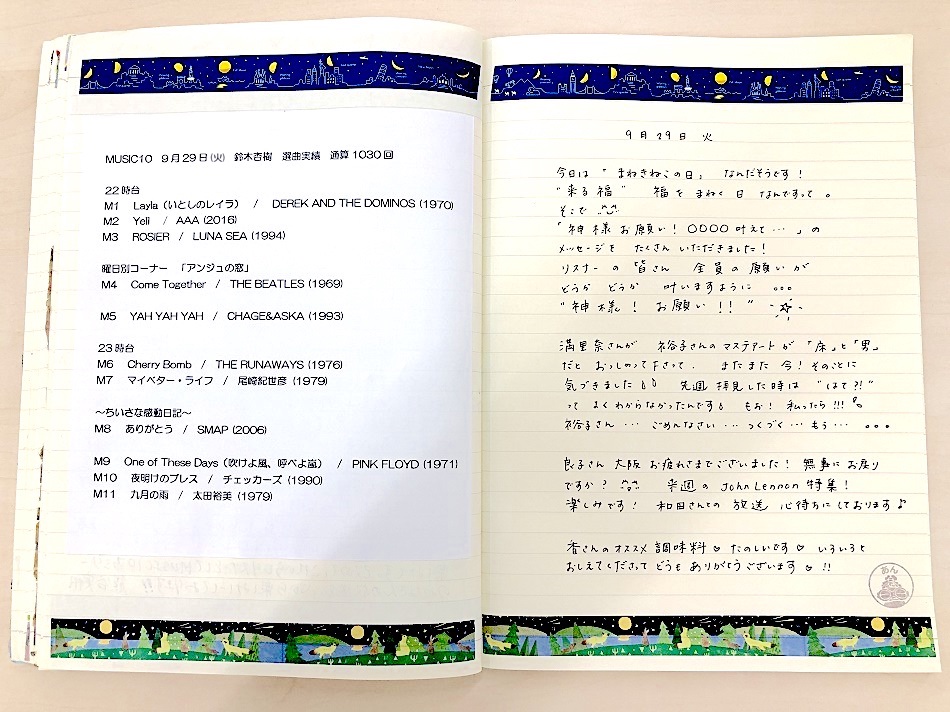 MUSIC10 9月29日(火) 鈴木杏樹 選曲実績 通算1030回
22時台
M1 Layla(いとしのレイラ) / DEREK AND THE DOMINOS (1970)
M2 Yeli / AAA (2016)
M3 ROSIER / LUNA SEA (1994)
曜日別コーナー 「アンジュの窓」
M4 Come Together / THE BEATLES (1969)
M5 YAH YAH YAH / CHAGE&ASKA (1993)
23時台
M6 Cherry Bomb / THE RUNAWAYS (1976)
M7 マイベター・ライフ / 尾崎紀世彦 (1979)
～ちいさな感動日記～
M8 ありがとう / SMAP (2006)
M9 One of These Days(吹けよ風、呼べよ嵐) / PINK FLOYD (1971)
M10 夜明けのブレス / チェッカーズ (1990)
M11 九月の雨 / 太田裕美 (1979)
9月29日 火
今日は 「まねきねこの日」 なんだそうです!
"来る福" 福をまねく日 なんですって。
そこで
「神様お願い! ○○○○叶えて…」の
メッセージを たくさん いただきました!
リスナーの皆さん 全員の願いが
どうか どうか 叶いますように 。。。
"神様! お願い!!"
満里奈さんが 裕子さんのマステアートが「床」と「男」
だと おっしゃって下さって、 またまた 今! そのことに
気づきました 先週 拝見した時は "はて?!"
って よくわからなかったんです もお! 私ったら!!!
裕子さん… ごめんなさい… つくづく… もう… 。。。
良子さん 大阪 お疲れさまでございました! 無事にお戻り
ですか? 来週の John Lennon 特集!
楽しみです! 和田さんとの 放送 心待ちにしております♪
香さんのオススメ 調味料♡ たのしいです♡ いろいろと
おしえてくださって どうも ありがとうございます♡!!
あん